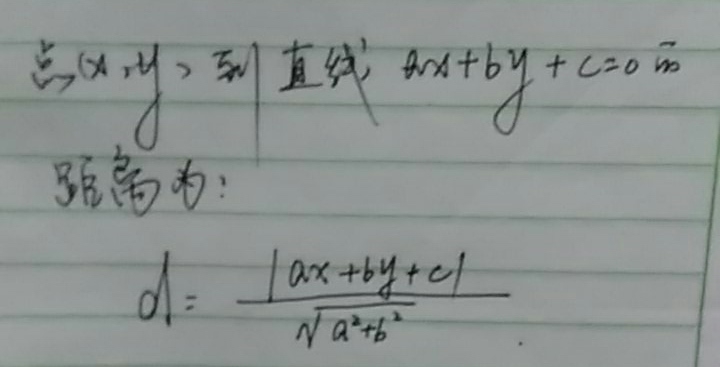 点(x,y)到直线 ax+by+c=0的
距离为:
d= |ax+by+c| / √a²+b²